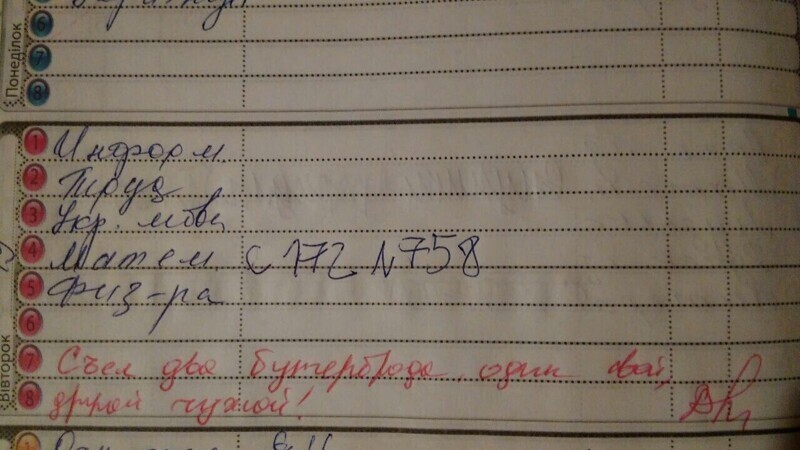 6
Понеділок
7
8
1 Информ.
2 Труда
3 Укр. мова
4 Матем. с 172 N 758
5 Физ-ра
6
Вівторок
7 Съел два бутерброда, один свой,
8 другой чужой!
1